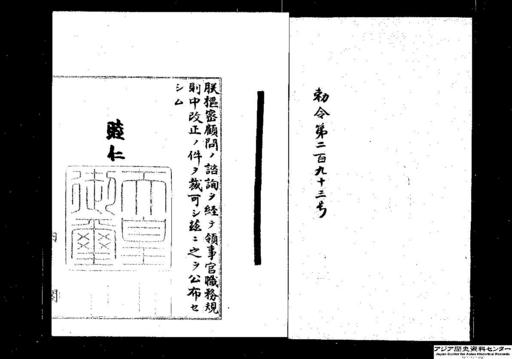 勅令第二百九十三号
朕枢密顧問ノ諮詢ヲ経テ領事官職務規
則中改正ノ件ヲ裁可シ茲ニ之ヲ公布セ
シム
睦仁
天皇
御璽
内
閣
アジア歴史資料センター
Japan Center for Asian Historical Records